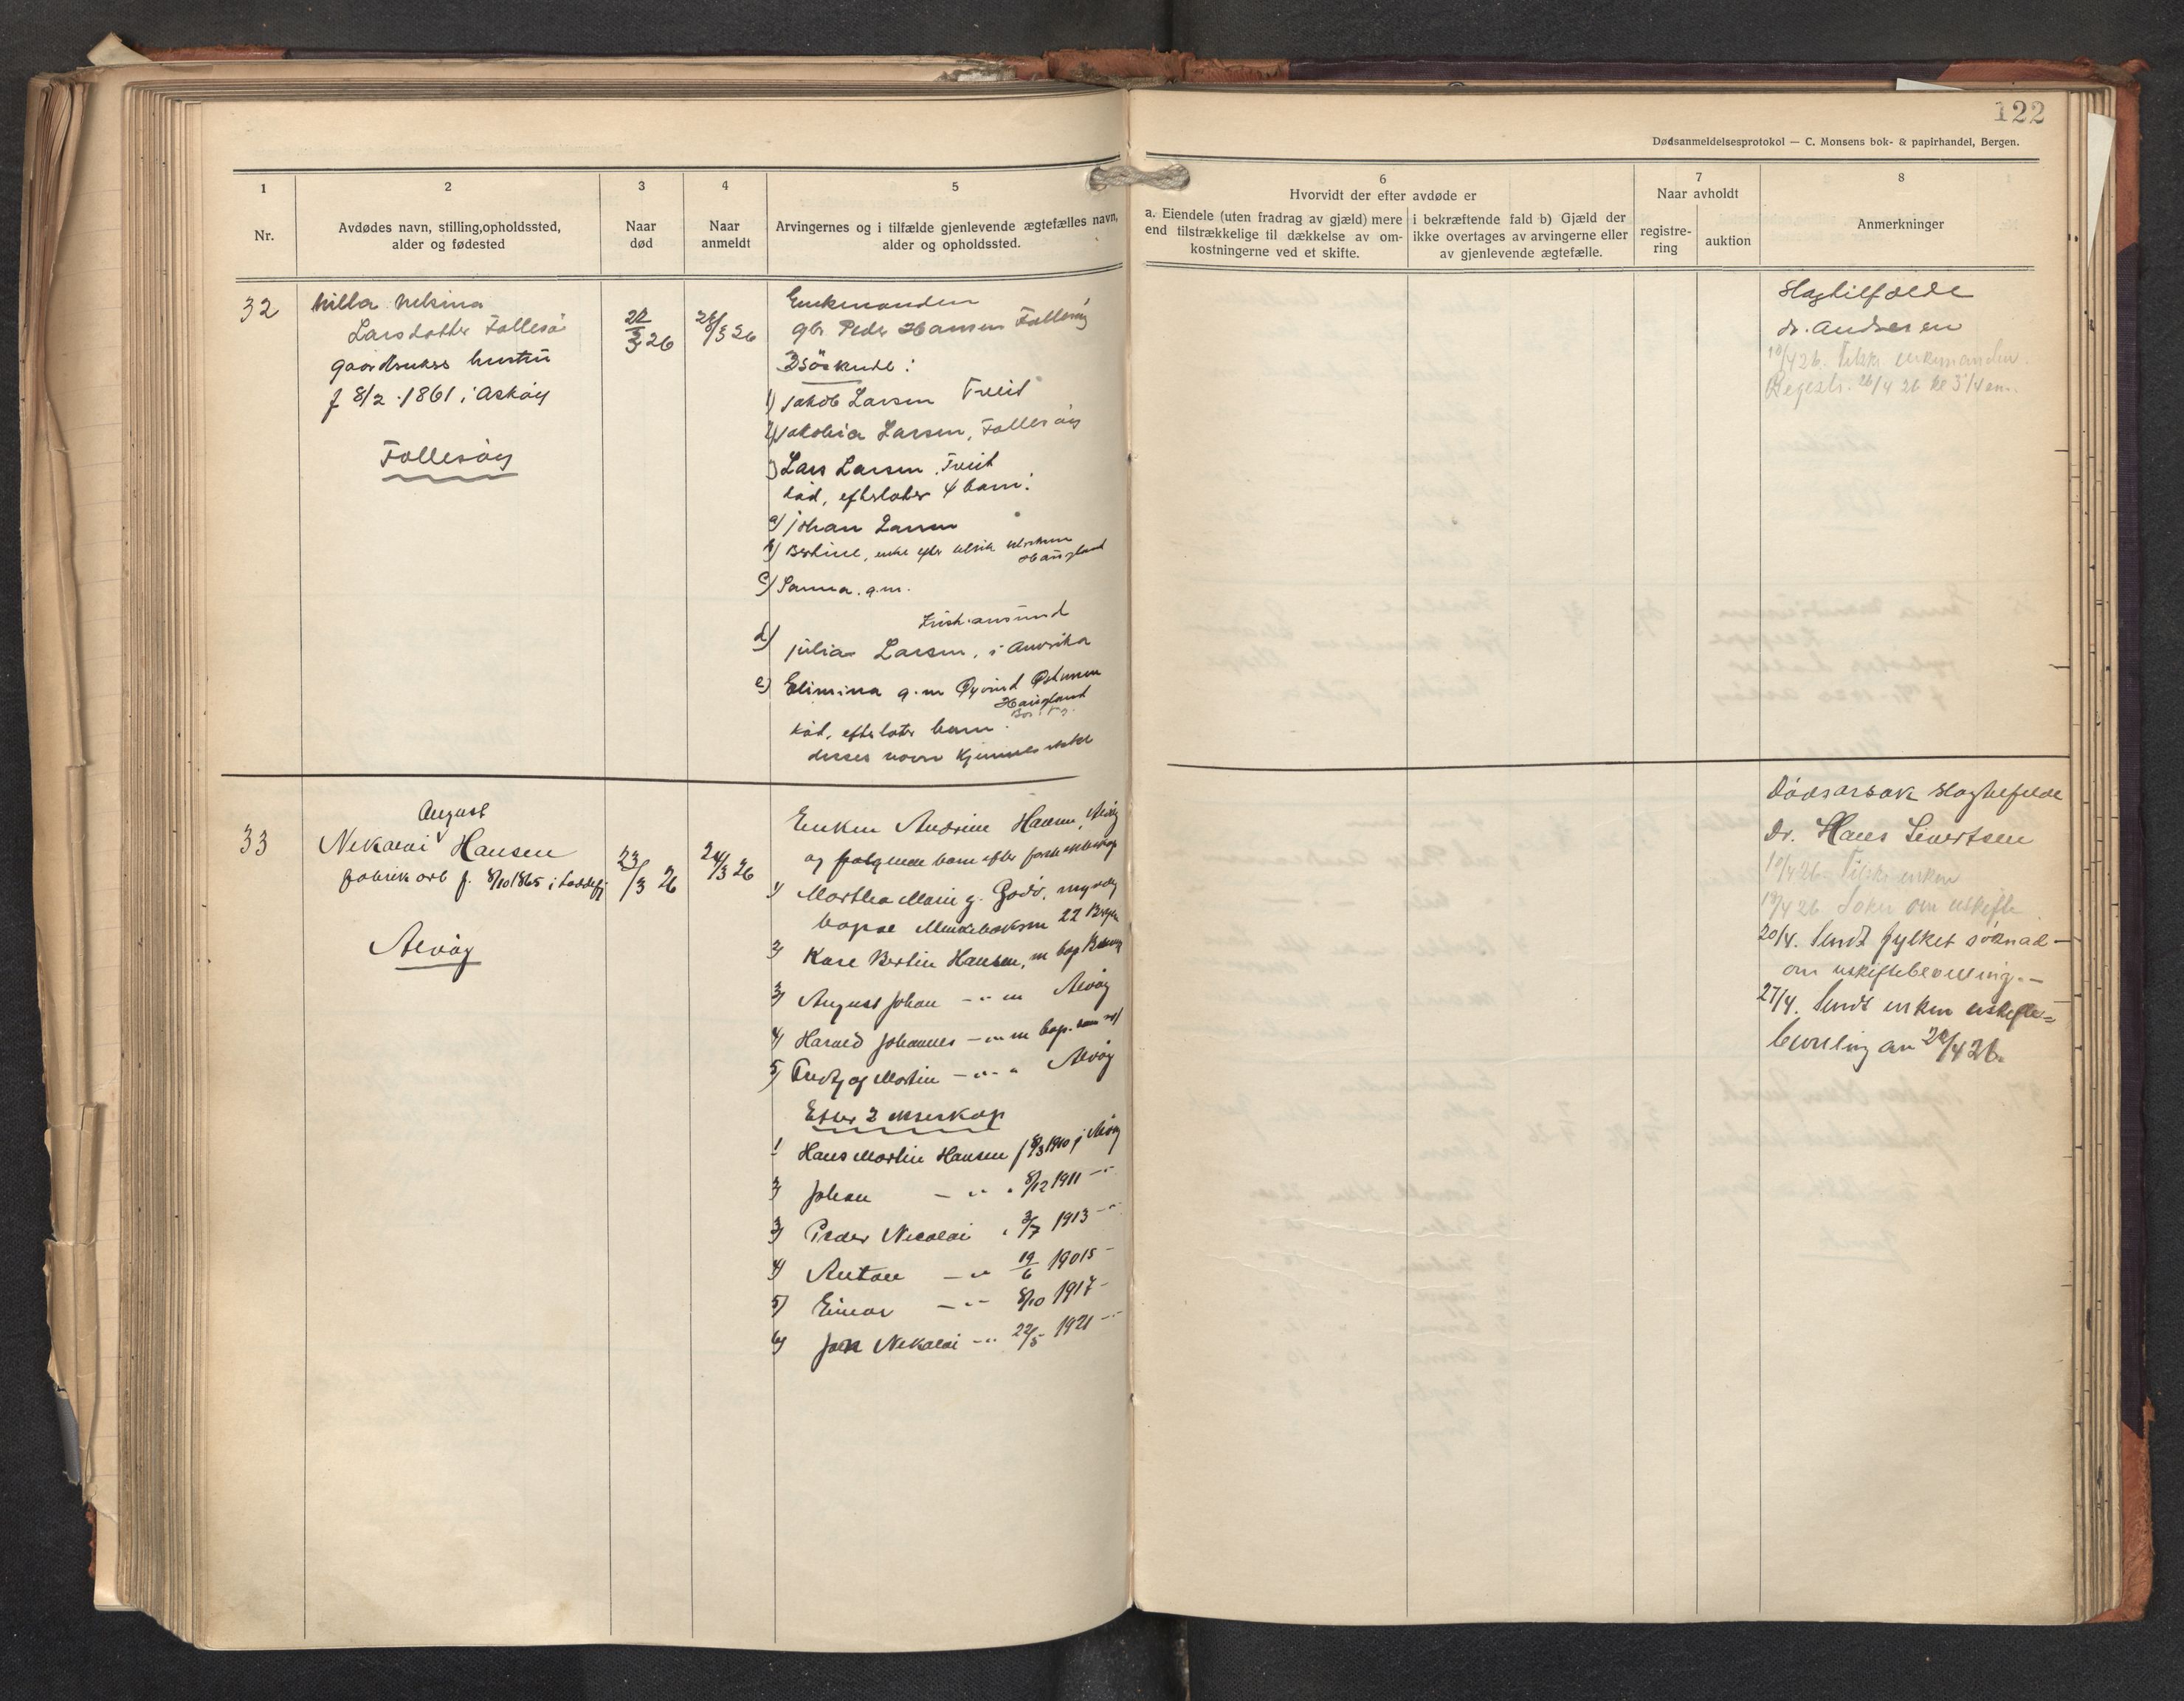 122
Dødsanmeldelsesprotokol — C. Monsens bok- & papirhandel, Bergen.
1
Nr.
2
Avdødes navn, stilling, opholdssted,
alder og fødested
3
Naar
død
4
Naar
anmeldt
5
Arvingernes og i tilfælde gjenlevende ægtefælles navn,
alder og opholdssted.
6
Hvorvidt der efter avdøde er
a. Eiendele (uten fradrag av gjæld) mere
end tilstrækkelige til dækkelse av om-
kostningerne ved et skifte.
i bekræftende fald b) Gjæld der
ikke overtages av arvingerne eller
av gjenlevende ægtefælle.
7
Naar avholdt
registre-
ring
auktion
8
Anmerkninger
32
Milla Nelsina
Larsdotter Follesö
gaardbrukers hustru
f 8/2 1861 i Askøy
Follesöy
22/3 26
26/3 26
Enkemanden
gbr Peder Hansen Follesöy
3 söskende:
1) Jakob Larsen Tveit
2) Jakobia Larsen, Follesöy
3) Lars Larsen, Tveit
död, efterlater 4 barn:
a) Johan Larsen
b) Bertine, enke efter Ulrik
Haugland
c) Sanna g.m.
Kristiansund
d) Julia Larsen, i Amerika
e) Elimina g.m Øyvind
Haugland
död, efterlater barn
disses navn kjennes ikke
Slagtilfælde
dr. Andresen
10/4 26. Tilskr. enkemanden.
Registr. 26/4 26 kl 3 1/4 em.
33
August
Nekolai Hansen
fabrik arb f. 8/10 1865 i Laddefj
Alvöy
23/3 26
24/3 26
Enken Andrine Hansen, Alvöy
og følgende barn efter første ekteskap
1) Martha Marie g. Godö, myndig
bopæl 22 Bergen
2) Kare Bertin Hansen, m bop
3) August Johan — " — m Alvöy
4) Harald Johannes — " — m bop. som
5) og Martin — " — " Alvöy
Efter 2 ekteskap
1 Hans Martin Hansen f 8/3 1910 i Alvöy
2) Johan — " — " 8/12 1911 — " —
3) Peder Nicolai " 3/7 1913 — " —
4) Anton — " 19/6 19015 —
5) Einar — " — 8/10 1917 —
6) Jon Nekolai — " 22/5 1921 — " —
Dödsårsak slagtilfelde
Dr. Hans Sivertsen
10/4 26. Tilskr. enken
19/4 26. Söker om uskifte
20/4. Sendt fylket söknad
om uskiftebevilling. —
27/4. Sendt enken uskifte=
bevilling av 22/4 26.